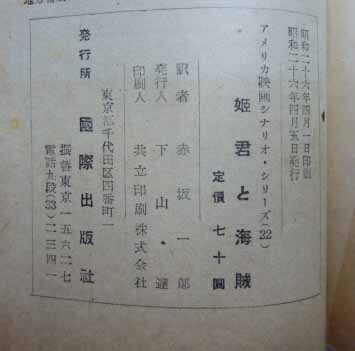 昭和二十六年四月一日印刷
昭和二十六年四月五日発行
アメリカ映画シナリオ・シリーズ(22)
姫君と海賊
定價 七十圓
訳者 赤坂一郎
発行人 下山 達
印刷人 共立印刷株式会社
東京都千代田区四番町一
発行所 國際出版社
振替東京一五六二七
電話九段(33)二三四一